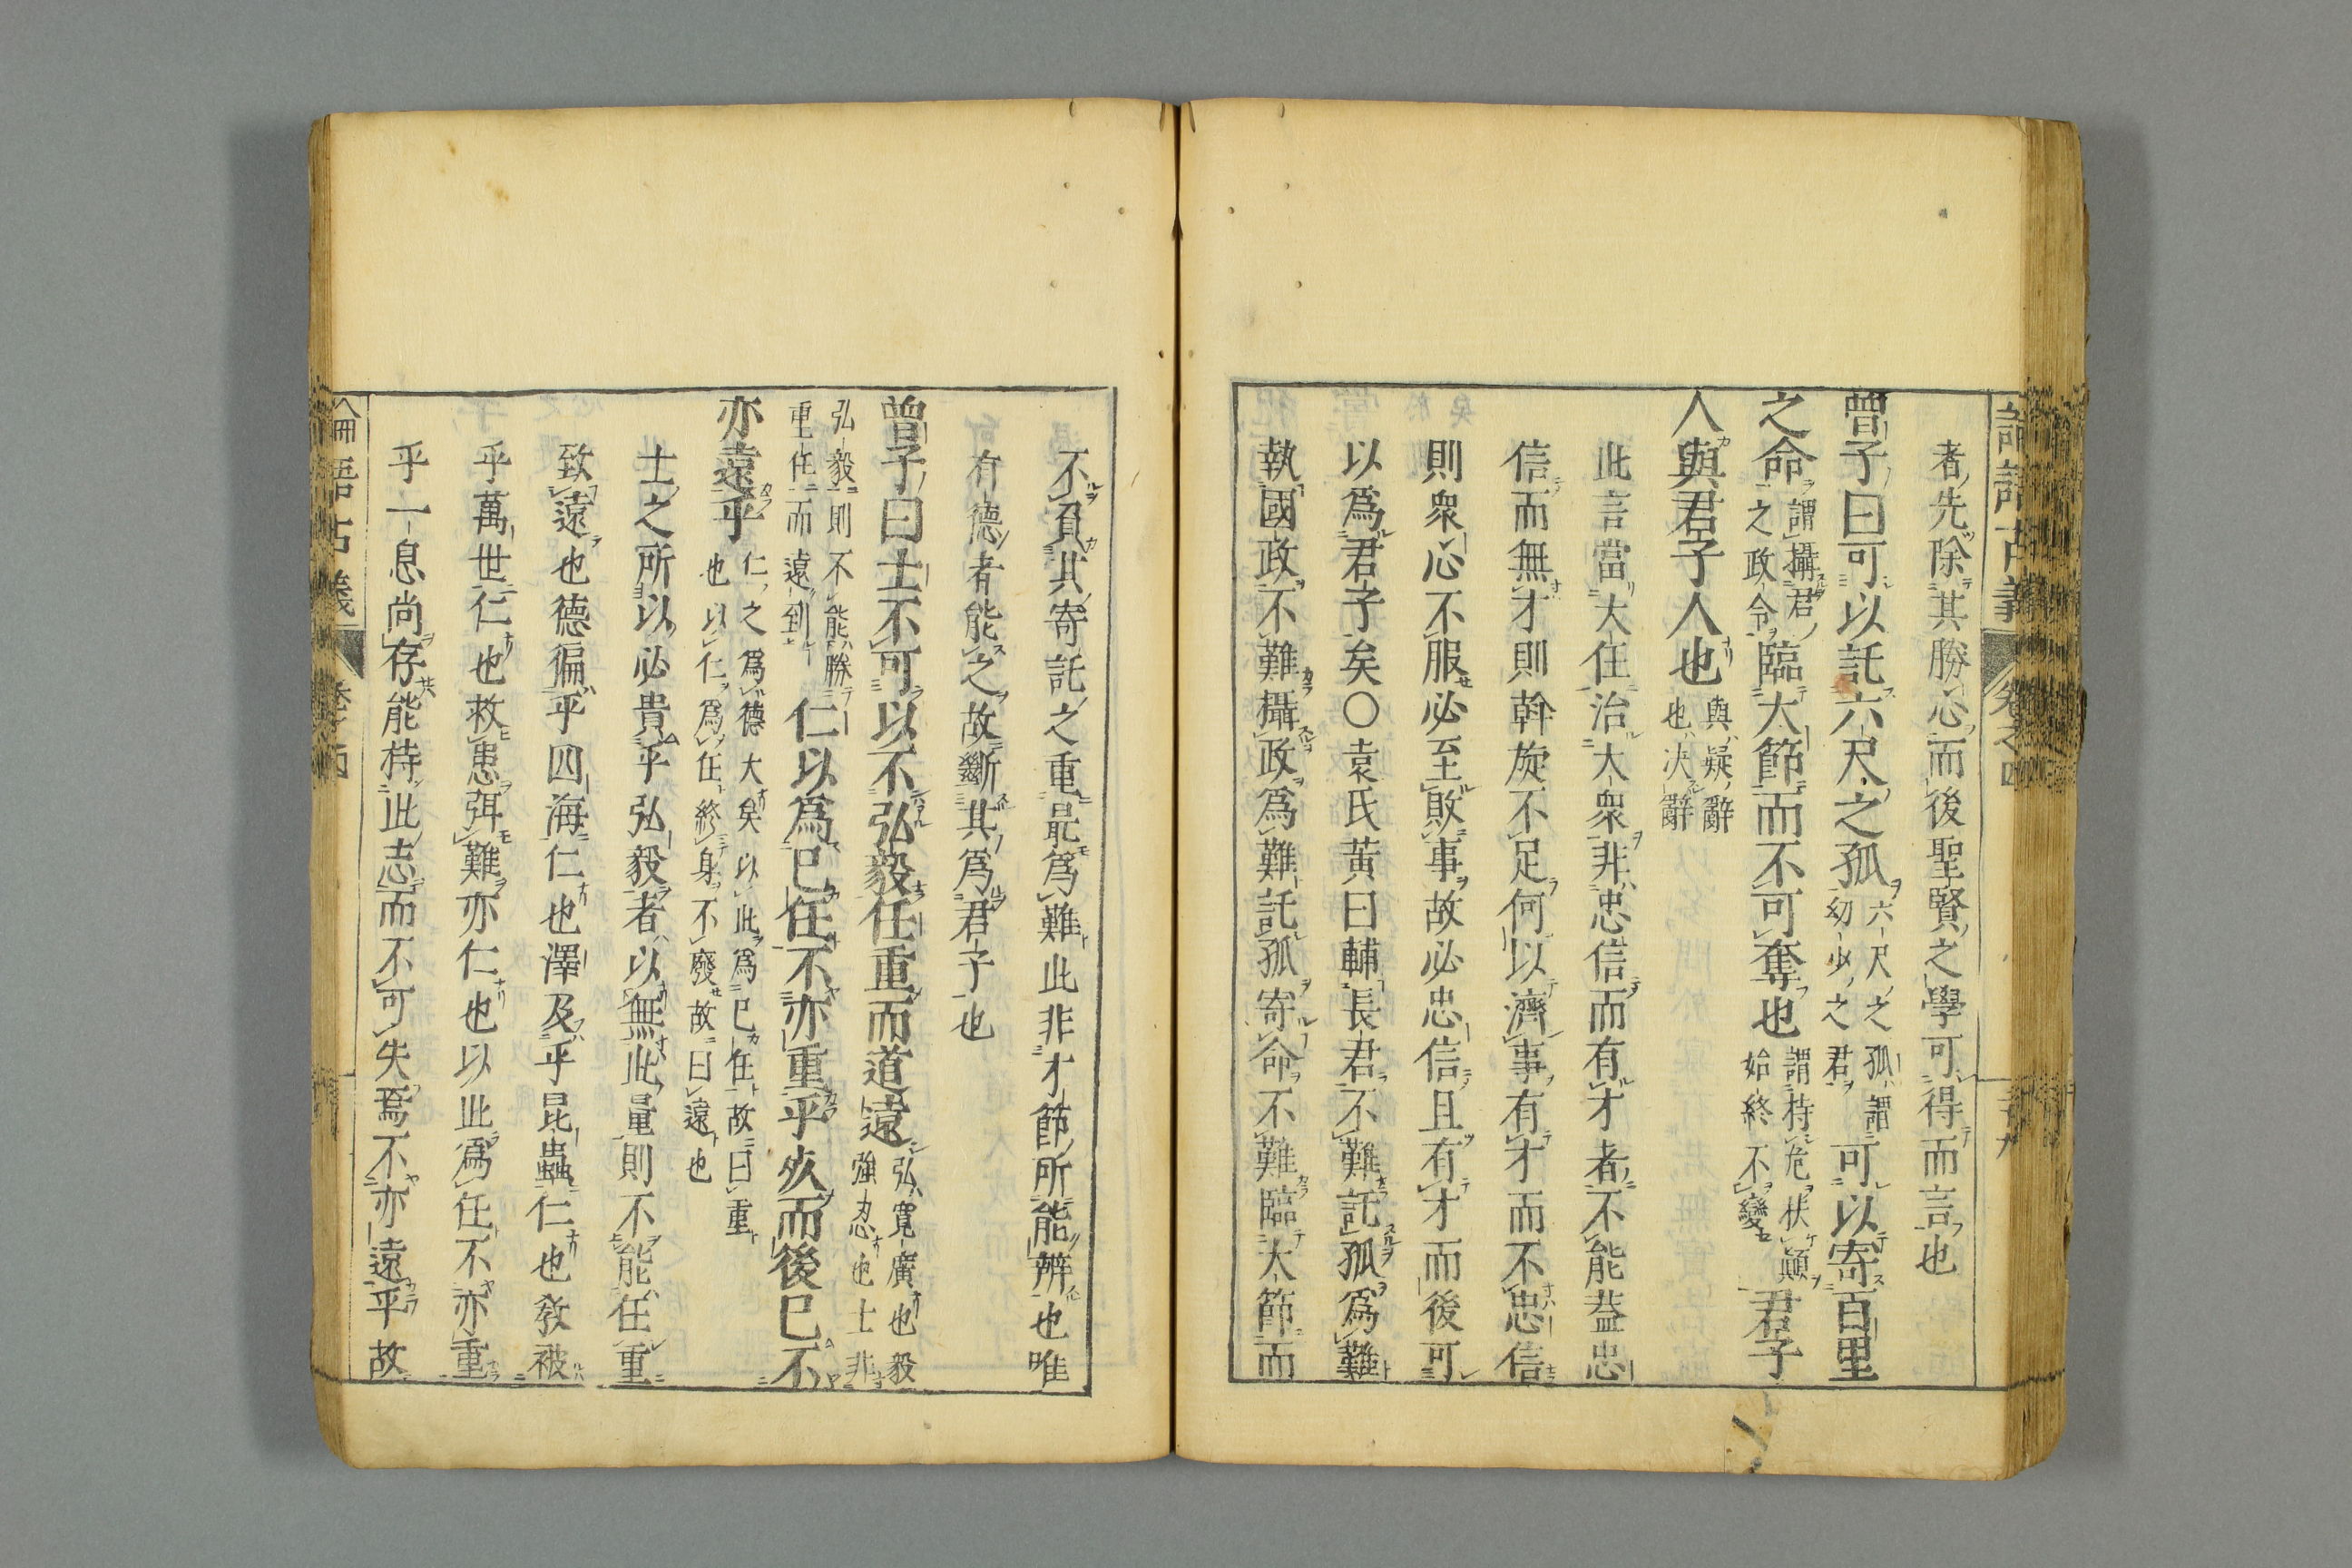 者先除其勝心而後聖賢之學可得而言也
曾子曰可以託六尺之孤六尺之孤謂幼少之君可以寄百里
之命謂攝君之政令臨大節而不可奪也謂持危扶顚始終不變君子
人與君子人也與疑辭也决辭
此言當大任治大衆非忠信而有才者不能葢忠
信而無才則幹旋不足何以濟事有才而不忠信
則衆心不服必至敗事故必忠信且有才而後可
以爲君子矣〇袁氏黃曰輔長君不難託孤爲難
執國政不難攝政爲難託孤寄命不難臨大節而
不負其寄託之重是爲難此非才節所能辨也唯
有德者能之故斷其爲君子也
曾子曰士不可以不弘毅任重而道遠弘寬廣也毅強忍也士非
弘毅則不能勝重任而遠到仁以爲己任不亦重乎死而後已不
亦遠乎仁之爲德大矣以此爲己任故曰重也以仁爲任終身不廢故曰遠也
士之所以必貴乎弘毅者以無此量則不能任重
致遠也德徧乎四海仁也澤及乎昆蟲仁也敎被
乎萬世仁也救患弭難亦仁也以此爲任不亦重
乎一息尚存能持此志而不可失焉不亦遠乎故
論語古義
卷之四